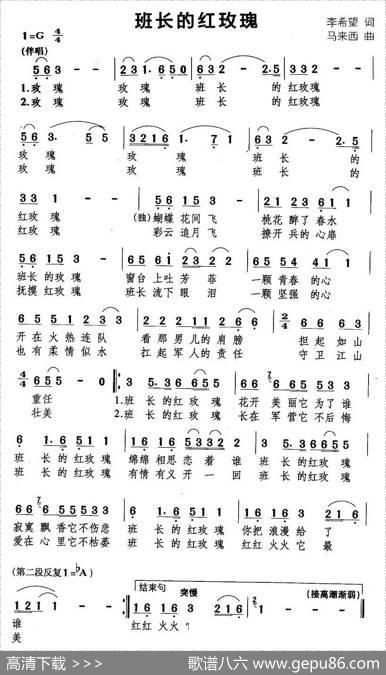 班长的红玫瑰
李希望 词
马来西 曲
1=G 4/4
(伴唱)
5 6 3 - - 2 3 1 . 6 5 1 0 5 6 3 2 - 2 . 5 3 3 2 - -
1.玫 瑰 玫 瑰 班 长 的 红玫瑰
2.玫 瑰 玫 瑰 班 长 的 红玫瑰
5 6 3 . 5 5 3 2 1 6 1 . 7 1 6 3 2 - 2 . 5
玫 瑰 玫 瑰 班 长 的
玫 瑰 玫 瑰 班 长 的
3 3 1 - - 5 6 1 5 3 - 2 1 2 3 6 1 -
红玫瑰 (独)蝴蝶 花间 飞 桃花 醉了 春水
红玫瑰 彩云 追月 飞 撩开 兵的 心扉
5 6 1 5 3 - 6 5 6 1 2 3 2 - 6 5 5 4 4 1 1 -
班长 的玫瑰 窗台 上吐 芳 菲 一颗 青春 的心
抚摸 红玫瑰 班长 流下 眼 泪 一颗 坚强 的心
6 5 5 1 2 3 3 - 2 2 1 1 2 2 1 6 - 2/4 6 6 5 6 1
开在 火热 连队 看那 男儿 的肩 膀 担起 如山
也有 柔情 似水 扛起 军人 的责 任 守卫 江山
4/4 6 5 5 - 0 3 5 . 3 6 6 5 5 6 6 6 5 5 5 3 3
重任 1.班 长 的红 玫瑰 花开 美丽 它为 了谁
壮美 2.班 长 的红 玫瑰 长在 军营 它不 后悔
6 1 . 6 5 1 1 1 6 1 6 5 3 3 2 2 3 5 . 3 6 6 5 5
班 长 的红 玫瑰 绵绵 相思 恋着 谁 班 长 的红玫瑰
班 长 的红 玫瑰 有情 有义 开一 回 班 长 的红玫瑰
6 6 6 5 5 5 3 3 6 1 . 6 5 1 1 1 6 1 6 5 3 2 1 6
寂寞 飘香 它不 伤悲 班 长 的红玫瑰 你把 浪漫 给了
爱在 心里 它不 枯萎 班 长 的红玫瑰 红红 火火 它 最
(第二段反复1=♭A)
结束句 突慢 (接高潮渐弱)
1 2 1 1 - - 1 6 1 6 3 2 1 6 2 1 - - -
谁 红红 火火
美
高清下载 >>> 歌谱八六 www.gepu86.com